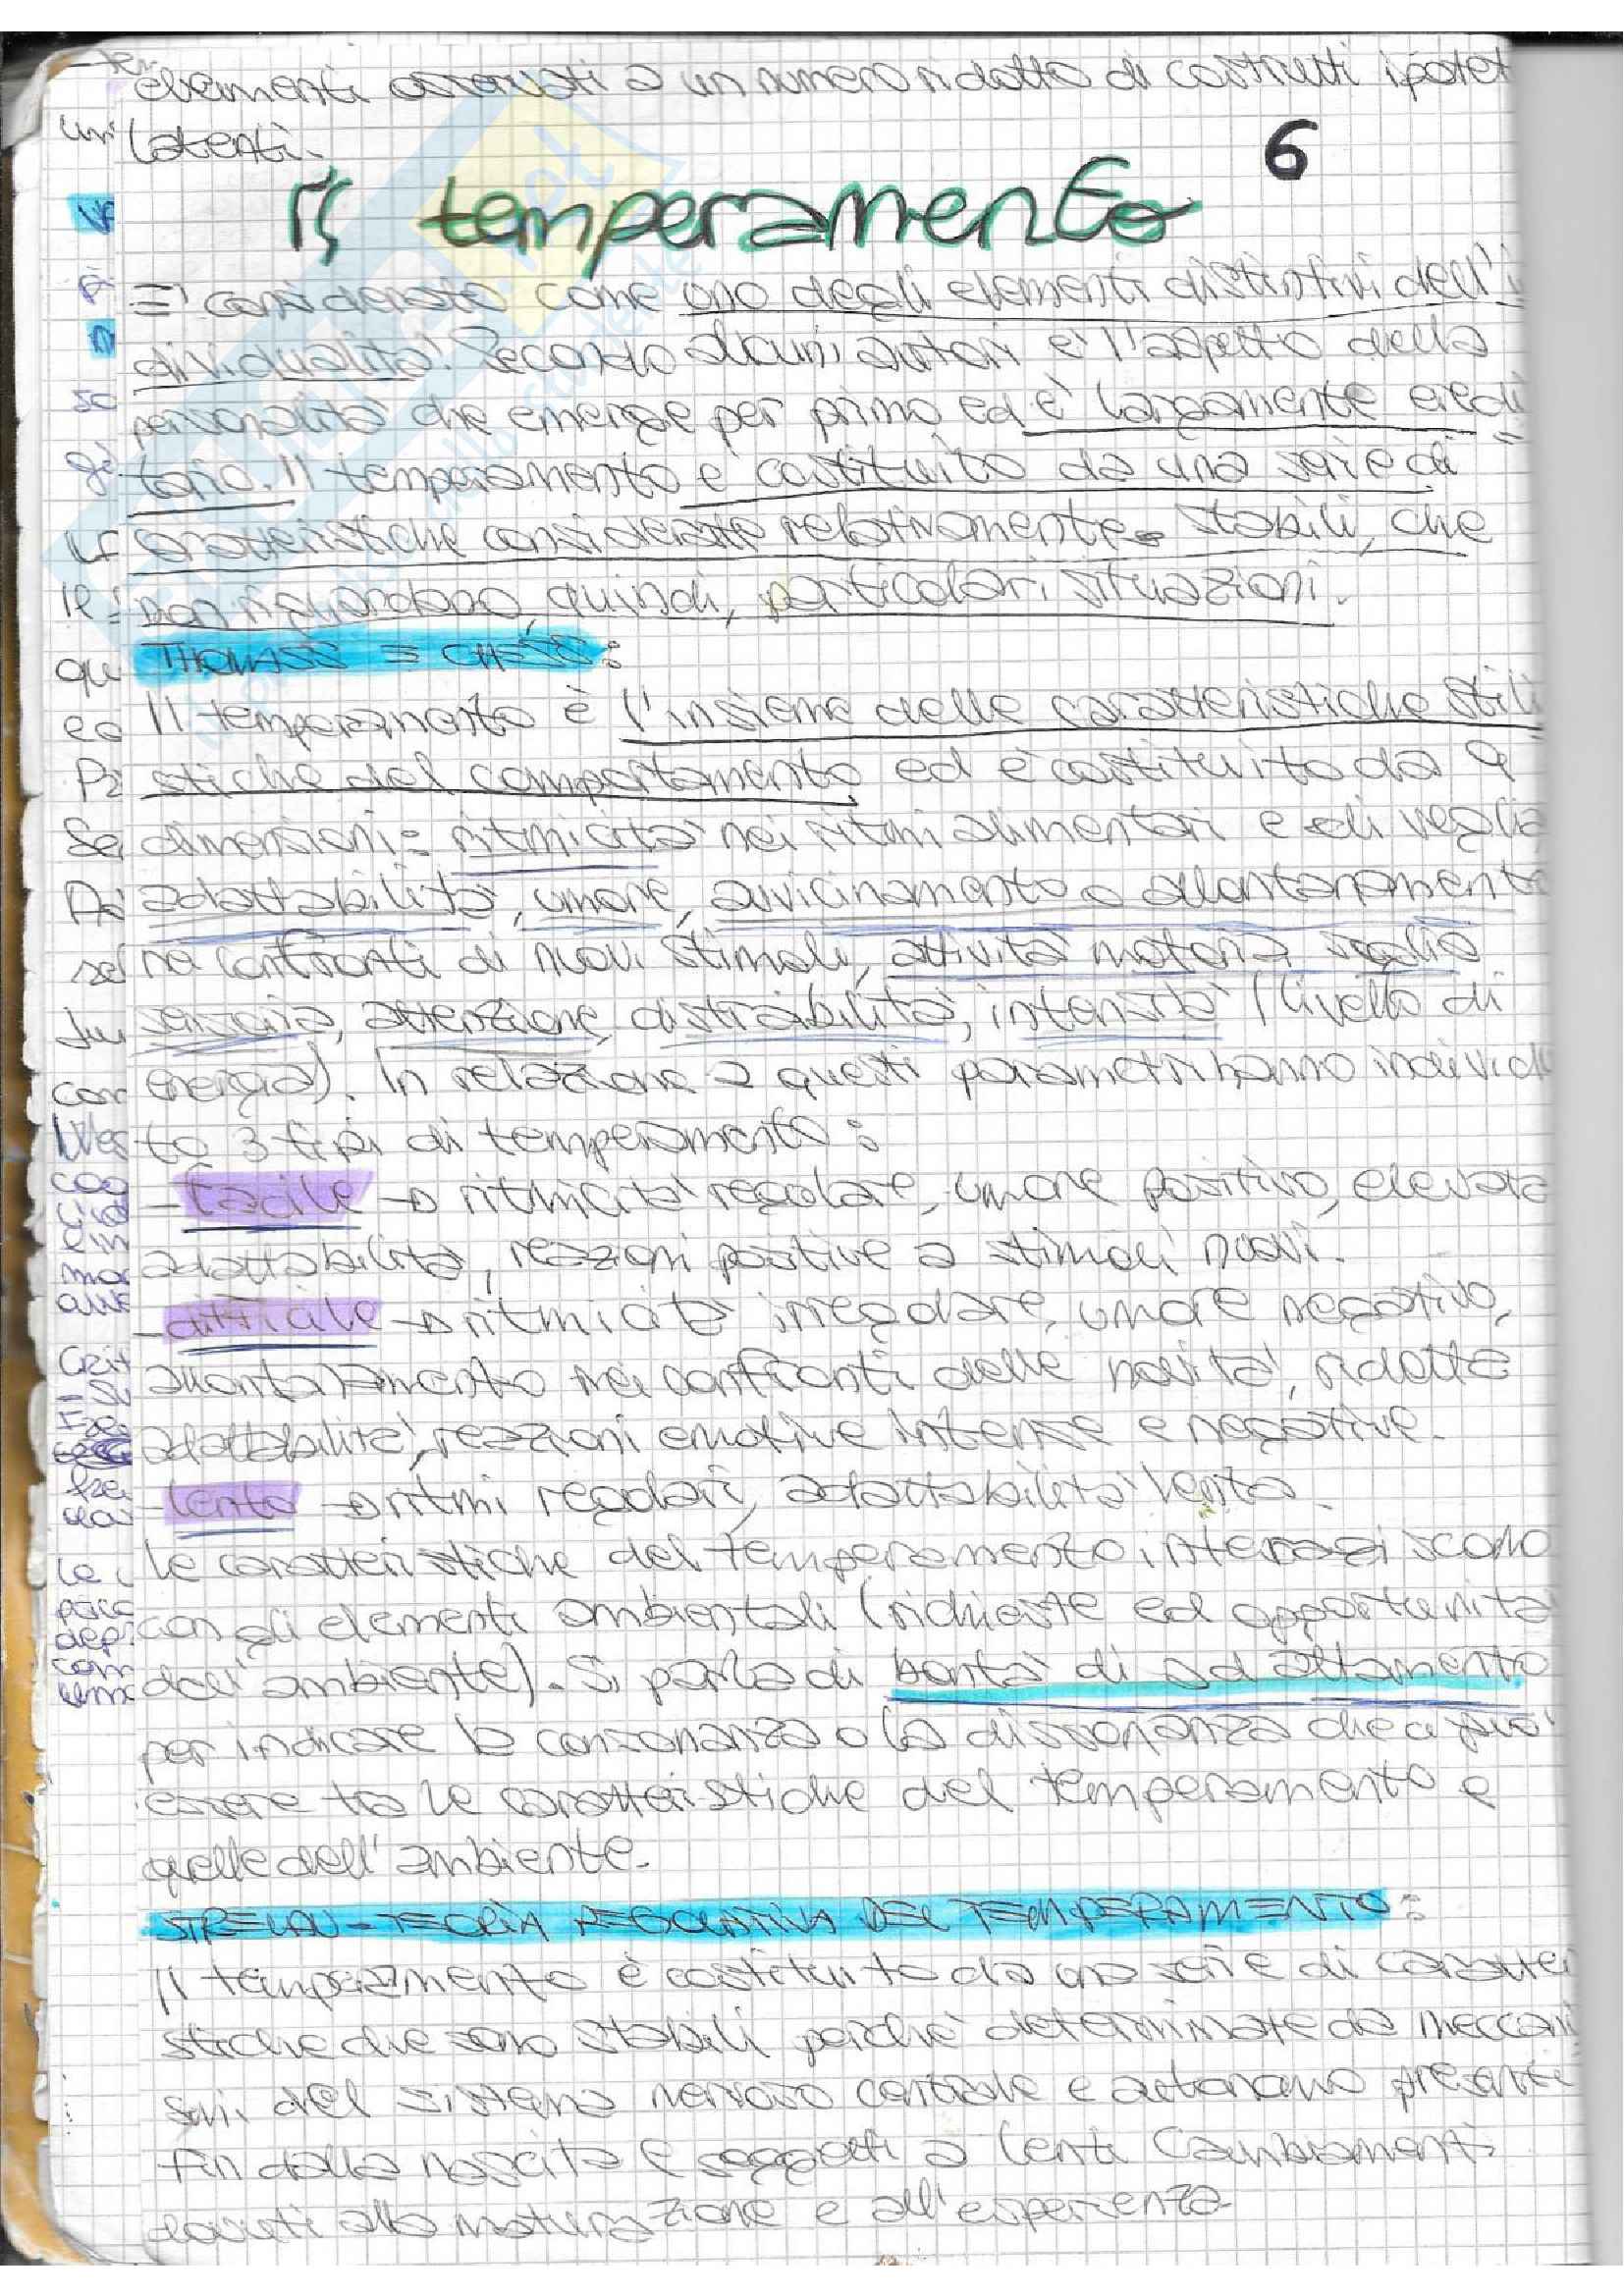 elementi osservati a un numero ridotto di costrutti ipotet
latenti.
6
Il temperamento
E' considerato come uno degli elementi distintivi dell'i
dividualità. Secondo alcuni autori è l'aspetto della
personalità che emerge per primo ed è largamente eredi
tario. Il temperamento e costituito da una serie di
caratteristiche considerate relativamente stabili, che
non riguardano, quindi, particolari situazioni.
THOMASS E CHESS:
Il temperamento è l'insieme delle caratteristiche stili
stiche del comportamento ed è costituito da 9
dimensioni: ritmicità nei ritmi alimentari e di veglia
adattabilità, umore, avvicinamento o allontanamento
nei confronti di nuovi stimoli, attività motoria, soglia
sensoria, attenzione, distraibilità, intensità (livello di
energia). In relazione a questi parametri hanno individu
to 3 tipi di temperamento:
- facile → ritmicità regolare, umore positivo, elevata
adattabilità, reazioni positive a stimoli nuovi.
- difficile → ritmicità irregolare, umore negativo,
allontanamento nei confronti delle novità, ridotta
adattabilità, reazioni emotive intense e negative.
- lento → ritmi regolari, adattabilità lenta.
Le caratteristiche del temperamento interagiscono
con gli elementi ambientali (richieste ed opportunità
dell'ambiente). Si parla di bontà di adattamento
per indicare la consonanza o la dissonanza che ci può
essere tra le caratteristiche del temperamento e
quelle dell'ambiente.
STRELAU - TEORIA REGOLATIVA DEL TEMPERAMENTO:
Il temperamento è costituito da una serie di caratteri
stiche che sono stabili perchè determinate da meccani
smi del sistema nervoso centrale e autonomo presenti
fin dalla nascita e soggetti a lenti cambiamenti
dovuti alla maturazione e all'esperienza.